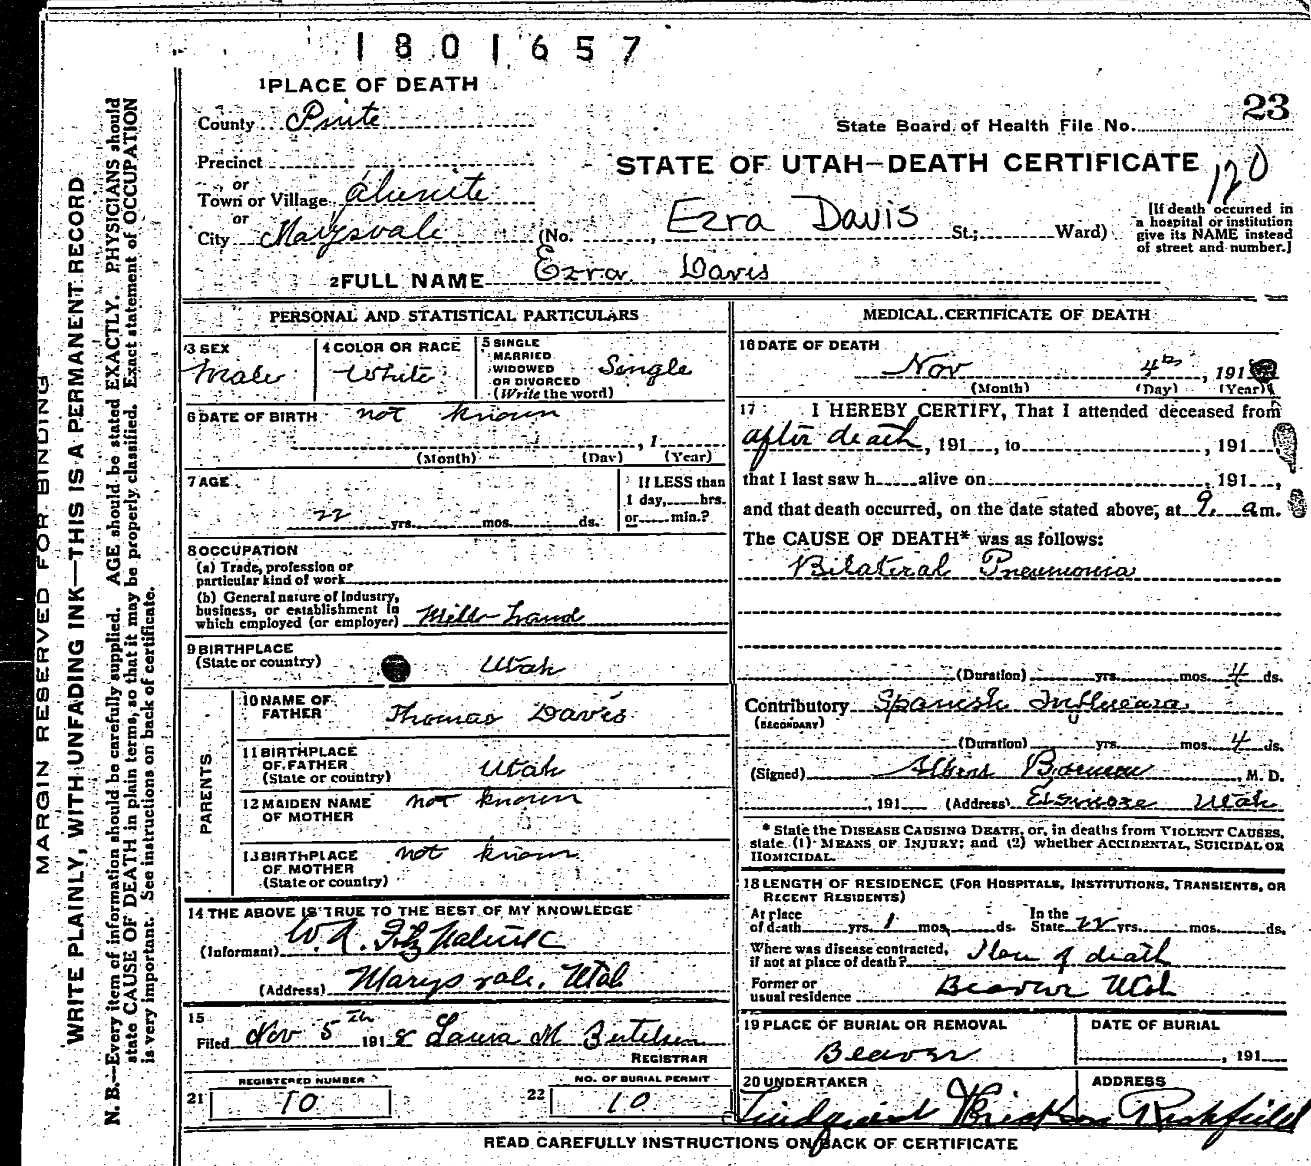 1801657
1 PLACE OF DEATH
23
County Piute
State Board of Health File No.
Precinct
STATE OF UTAH—DEATH CERTIFICATE
120
or
Town or Village Alunite
or
City Marysvale (No. , Ezra Davis St.; Ward)
[If death occurred in
a hospital or institution
give its NAME instead
of street and number.]
2 FULL NAME Ezra Davis
PERSONAL AND STATISTICAL PARTICULARS
3 SEX
Male
4 COLOR OR RACE
White
5 SINGLE
MARRIED
WIDOWED
OR DIVORCED
(Write the word)
Single
6 DATE OF BIRTH not known
, 1
(Month) (Day) (Year)
7 AGE
22 yrs. mos. ds.
If LESS than
1 day, hrs.
or min.?
8 OCCUPATION
(a) Trade, profession or
particular kind of work
(b) General nature of industry,
business, or establishment in
which employed (or employer) Mill-Hand
9 BIRTHPLACE
(State or country) Utah
PARENTS
10 NAME OF
FATHER Thomas Davis
11 BIRTHPLACE
OF FATHER
(State or country) Utah
12 MAIDEN NAME
OF MOTHER not known
13 BIRTHPLACE
OF MOTHER
(State or country) not known
14 THE ABOVE IS TRUE TO THE BEST OF MY KNOWLEDGE
(Informant)
(Address) Marysvale, Utah
15
Filed Nov 5th 1918 Laura M Bertelsen
REGISTRAR
21 REGISTERED NUMBER
10
22 NO. OF BURIAL PERMIT
10
MEDICAL CERTIFICATE OF DEATH
16 DATE OF DEATH
Nov 4th, 191
(Month) (Day) (Year)
17 I HEREBY CERTIFY, That I attended deceased from
after death, 191 , to , 191 ,
that I last saw h alive on , 191 ,
and that death occurred, on the date stated above, at 9. am.
The CAUSE OF DEATH* was as follows:
Bilateral Pneumonia
(Duration) yrs. mos. 4 ds.
Contributory Spanish Influenza
(SECONDARY)
(Duration) yrs. mos. 4 ds.
(Signed) Albert , M. D.
, 191 (Address) Elsinore Utah
* State the DISEASE CAUSING DEATH, or, in deaths from VIOLENT CAUSES,
state (1) MEANS OF INJURY; and (2) whether ACCIDENTAL, SUICIDAL OR
HOMICIDAL.
18 LENGTH OF RESIDENCE (FOR HOSPITALS, INSTITUTIONS, TRANSIENTS, OR
RECENT RESIDENTS)
At place
of death yrs. 1 mos. ds.
In the
State 22 yrs. mos. ds.
Where was disease contracted,
if not at place of death? of death
Former or
usual residence Beaver Utah
19 PLACE OF BURIAL OR REMOVAL
Beaver
DATE OF BURIAL
, 191
20 UNDERTAKER
Lindquist
ADDRESS
Richfield
READ CAREFULLY INSTRUCTIONS ON BACK OF CERTIFICATE
MARGIN RESERVED FOR BINDING
WRITE PLAINLY, WITH UNFADING INK—THIS IS A PERMANENT RECORD
N. B.—Every item of information should be carefully supplied. AGE should be stated EXACTLY. PHYSICIANS should
state CAUSE OF DEATH in plain terms, so that it may be properly classified. Exact statement of OCCUPATION
is very important. See instructions on back of certificate.